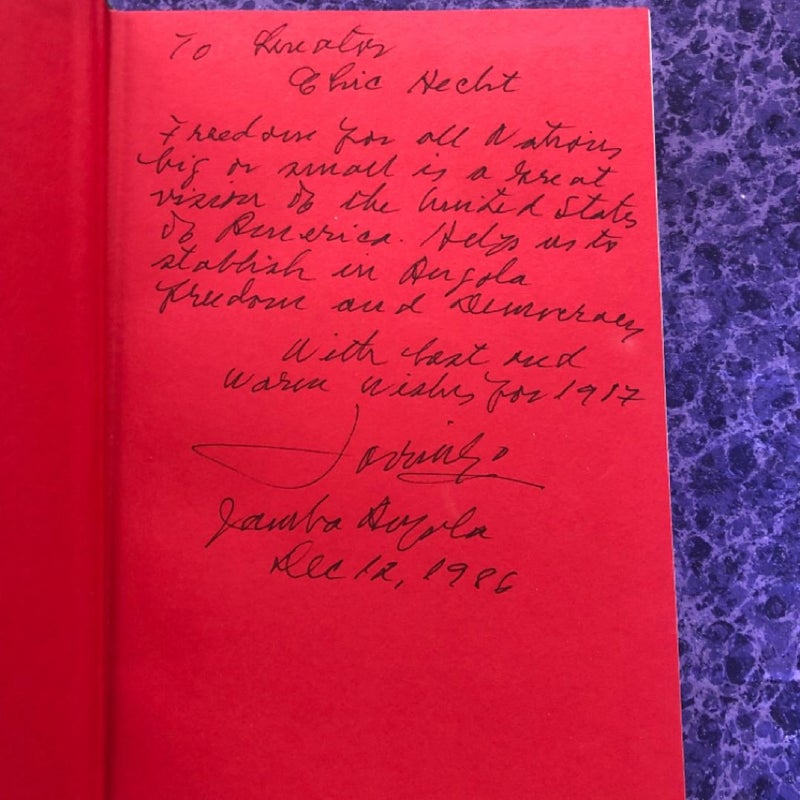 To Senator
Chic Hecht
Freedom for all Nations
big or small is a great
vision of the United States
of America. Help us to
stablish in Angola
freedom and Democracy
With best and
warm wishes for 1987
Jamba Angola
Dec 12, 1986